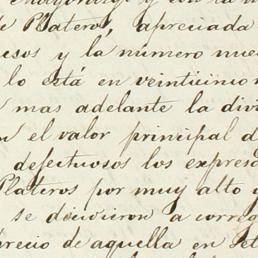 de Plateros, apreciada
esos y la número nue
lo está en veinticinco
mas adelante la divi
n el valor principal d
defectuosos los expresa
Plateros por muy alto y
se decidieron a correg
precio de aquella en set